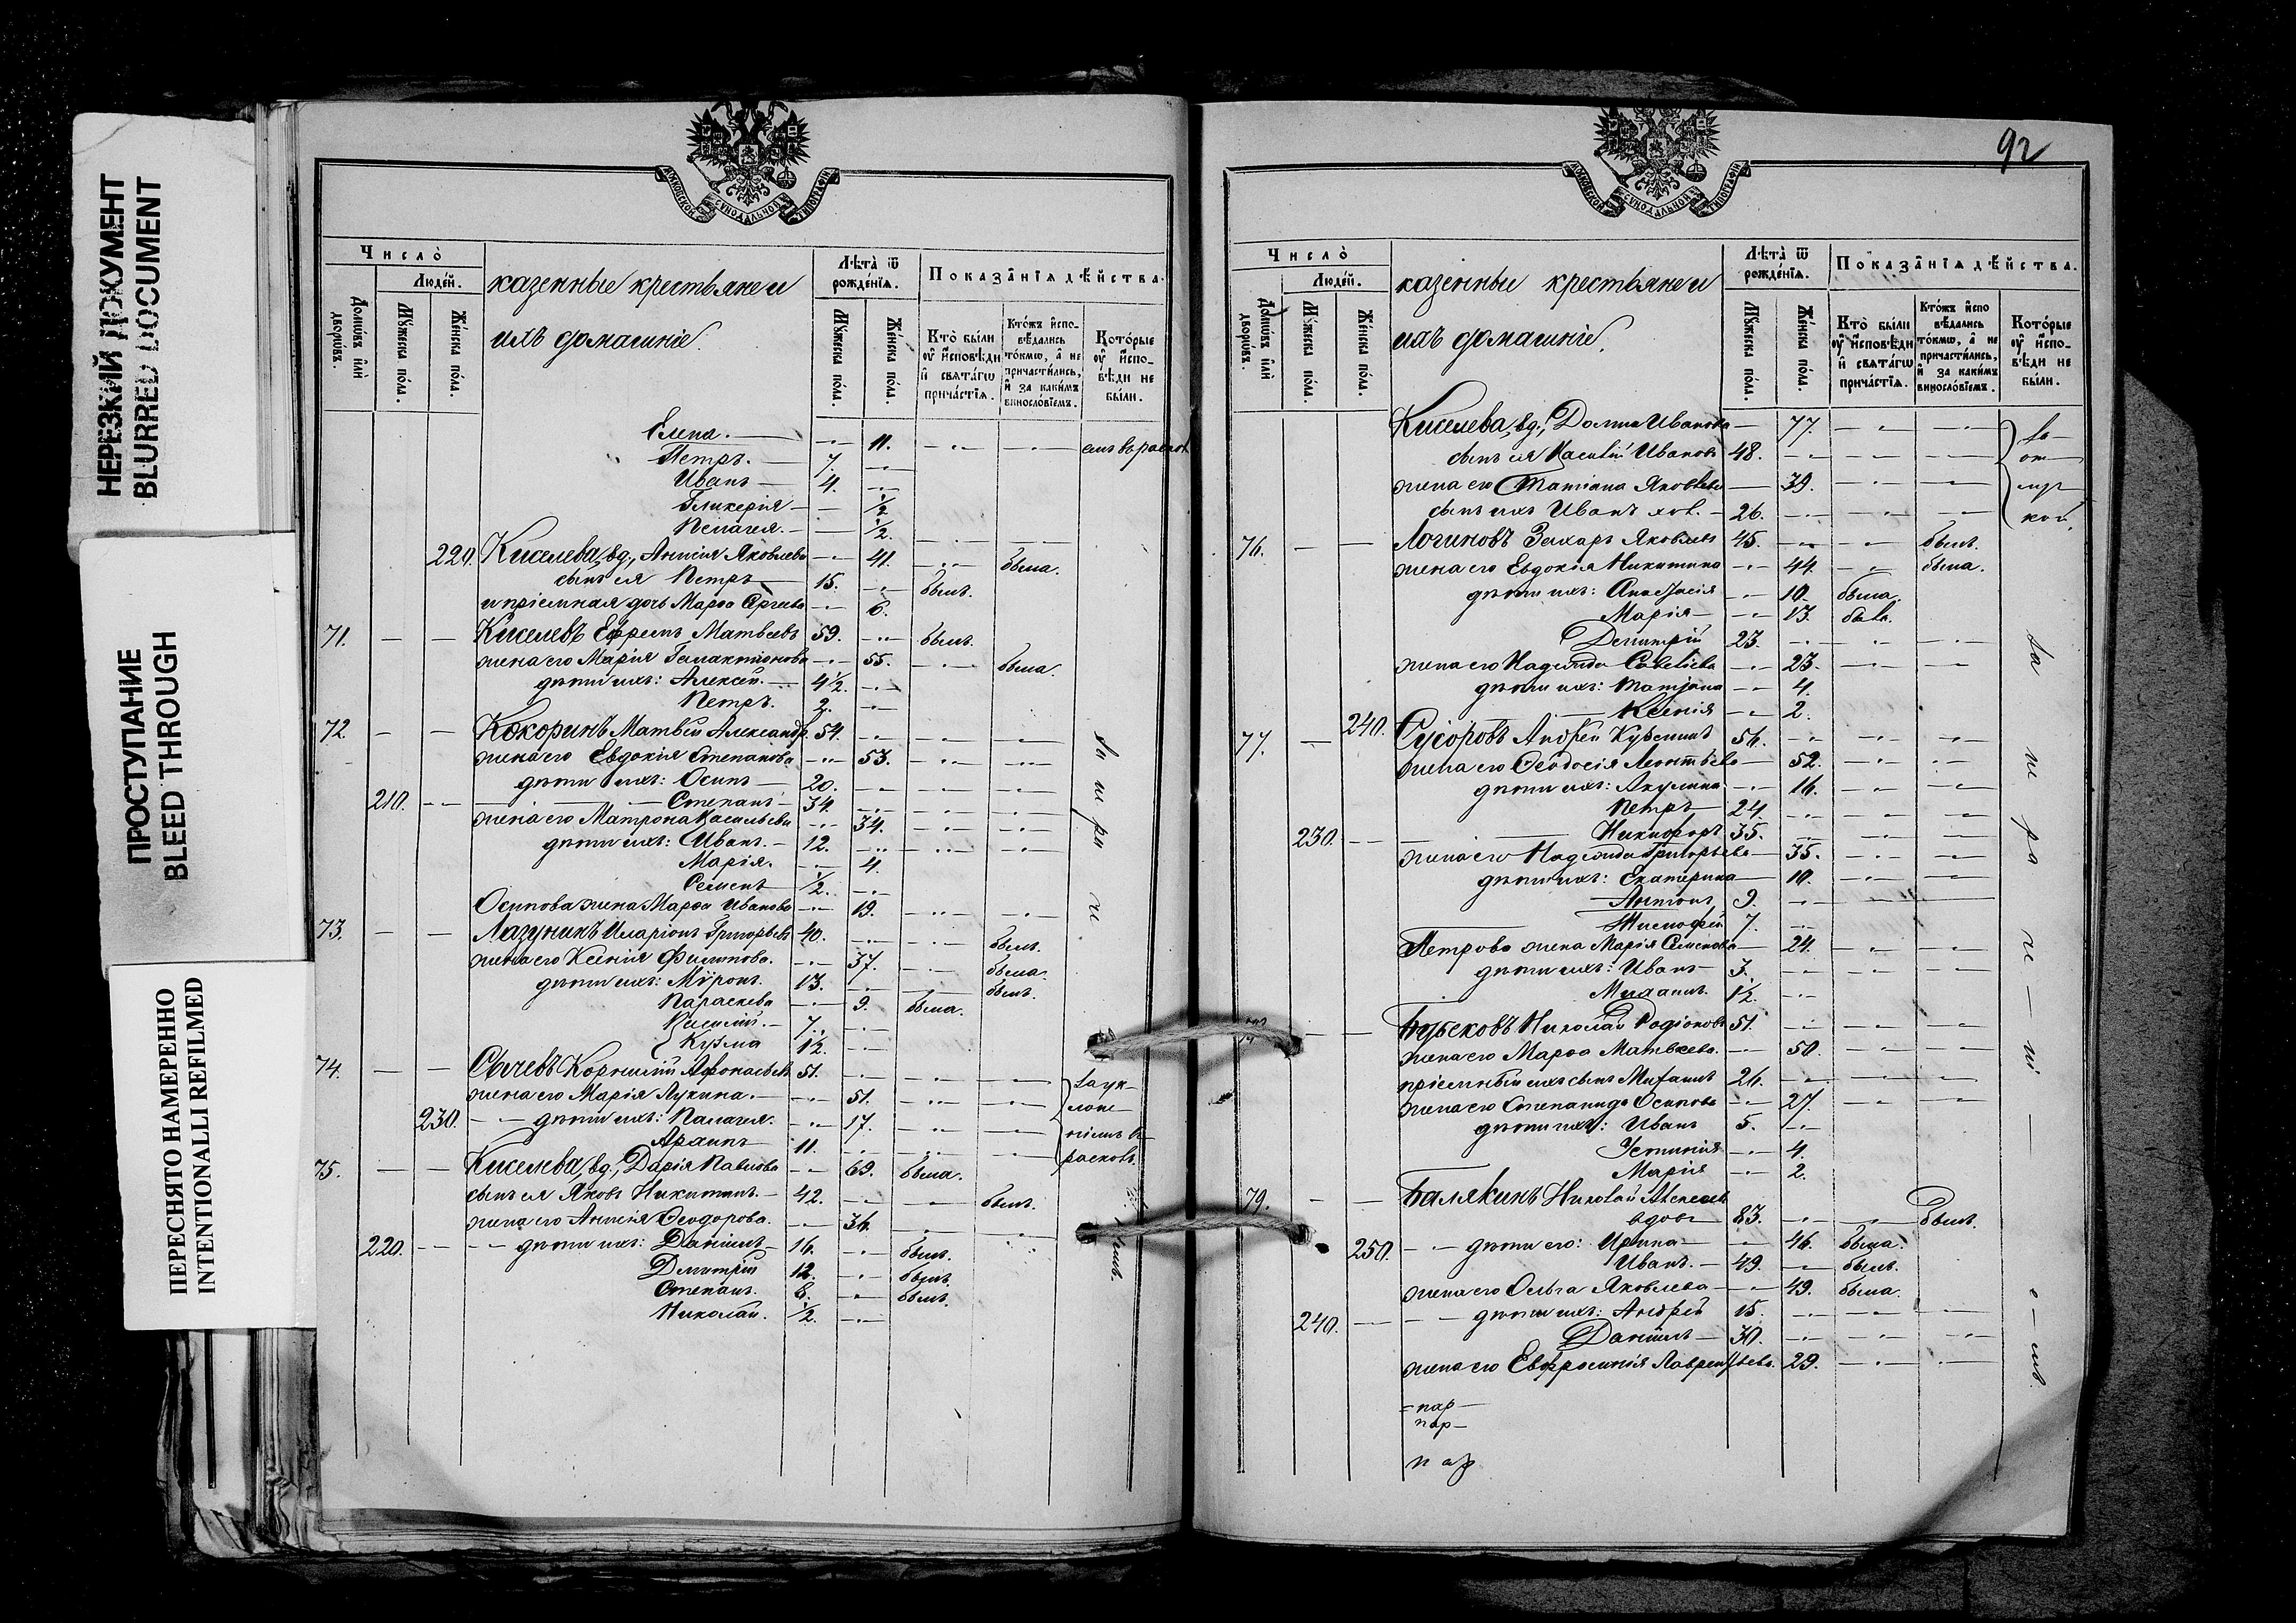 НЕРЕЗКИЙ ДОКУМЕНТ
BLURRED DOCUMENT
ПРОСТУПАНИЕ
BLEED THROUGH
ПЕРЕСНЯТО НАМЕРЕННО
INTENTIONALLI REFILMED
МОСКОВСКОЙ СУНОДАЛЬНОЙ ТИПОГРАФІИ
Число̀
Люде́й.
Домѡ́въ и҆лѝ дворѡ́въ.
Мꙋ́жеска по́ла.
Же́нска по́ла.
казенные крестьяне и
ихъ домашніе.
Лѣта̀ ѿ рожде́нїѧ.
Мꙋ́жеска по́ла.
Же́нска по́ла.
Показа̑нїѧ дѣ́йства.
Кто̀ бы́ли оу҆ и҆сповѣ́ди и҆ свѧта́гѡ прича́стїѧ.
Кто́жъ и҆спо-вѣ́дались то́кмѡ, а҆ не причасти́лись, и҆ за каки́мъ виносло́вїемъ.
Кото́рые оу҆ и҆спо-вѣ́ди не бы́ли.
Елена. — 11.
Петръ. — 7.
Иванъ — 4.
Гликерія — 1/2
Пелагея. — 1/2.
220. Киселева, вд., Анисія Яковлева 41. была.
сынъ ея Петръ 15. былъ.
и пріемная дочь Марѳа Сергеева 6.
71. Киселевъ Ефремъ Матвеевъ 59. былъ.
жена его Марія Галактіонова 55. была.
дѣти ихъ: Алексѣй. 4 1/2.
Петръ. 2.
72. Кокоринъ Матвѣй Александр. 54.
жена его Евдокія Степанова 53.
дѣти ихъ: Осипъ 20.
210. Степанъ 34.
жена его Матрона Васильева 34.
дѣти ихъ: Иванъ. 12.
Марія. 4.
Семенъ 1/2.
Осипова жена Марѳа Иванова 19.
73. Лазуникъ Иларіонъ Григорьевъ 40. былъ.
жена его Ксенія Филипова. 37. была.
дѣти ихъ: Мѵронъ. 13. былъ.
Параскева 9. была.
Василій. 7.
Кузма 1/2.
74. Сычевъ Корнилій Афонасьевъ 51.
жена его Марія Лукина. 51.
230. дѣти ихъ: Палагея. 17.
Архипъ 11.
75. Киселева, вд., Дарія Павлова 69. была.
сынъ ея Яковъ Никитинъ. 42. былъ.
жена его Анисія Ѳеодорова. 36.
220. дѣти ихъ: Даніилъ 16. былъ.
Дмитрій 12. былъ.
Степанъ. 8. былъ.
Николай. 1/2.
92
МОСКОВСКОЙ СУНОДАЛЬНОЙ ТИПОГРАФІИ
Число̀
Люде́й.
Домѡ́въ и҆лѝ дворѡ́въ.
Мꙋ́жеска по́ла.
Же́нска по́ла.
казенные крестьяне и
ихъ домашніе.
Лѣта̀ ѿ рожде́нїѧ.
Мꙋ́жеска по́ла.
Же́нска по́ла.
Показа̑нїѧ дѣ́йства.
Кто̀ бы́ли оу҆ и҆сповѣ́ди и҆ свѧта́гѡ прича́стїѧ.
Кто́жъ и҆спо вѣ́дались то́кмѡ, а҆ не причасти́лись, и҆ за каки́мъ виносло́вїемъ.
Кото́рые оу҆ и҆спо-вѣ́ди не бы́ли.
Киселева, вд., Домна Иванова 77.
сынъ ея Василій Ивановъ 48.
жена его Татіана Яковлева 39.
сынъ ихъ Иванъ хол. 26.
76. Логиновъ Захаръ Яковлевъ 45. былъ.
жена его Евдокія Никитина 44. была.
дѣти ихъ: Анастасія 10. была.
Марія 13. была.
Димитрій 23.
жена его Надежда Савельева 23.
дѣти ихъ: Татіана 4.
240. Ксенія 2.
77. Сусоровъ Андрей Кузминъ 56.
жена его Ѳеодосія Леонтьева 52.
дѣти ихъ: Акулина 16.
Петръ 24.
230. Никифоръ 35.
жена его Надежда Григорьева 35.
дѣти ихъ: Екатерина 10.
Антонъ 9.
Тимофей 7.
Петрова жена Марія Семенова 24.
дѣти ихъ: Иванъ 3.
Михаилъ. 1/2.
Николай Родіоновъ 51.
жена его Марѳа Матвеева. 50.
пріемный ихъ сынъ Михаилъ 26.
жена его Степанида Осипова 27.
дѣти ихъ: Иванъ 5.
Устинія 4.
Марія 2.
79. Балякинъ Николай Алексеевъ
вдовъ 83. былъ.
250. дѣти его: Ирина 46. была.
Иванъ. 49. былъ.
жена его Ольга Яковлева 49. была.
240. дѣти ихъ: Андрей 15.
Даніилъ 30.
жена его Евфросинія Лаврентьева. 29.
= пар —
пар —
пар